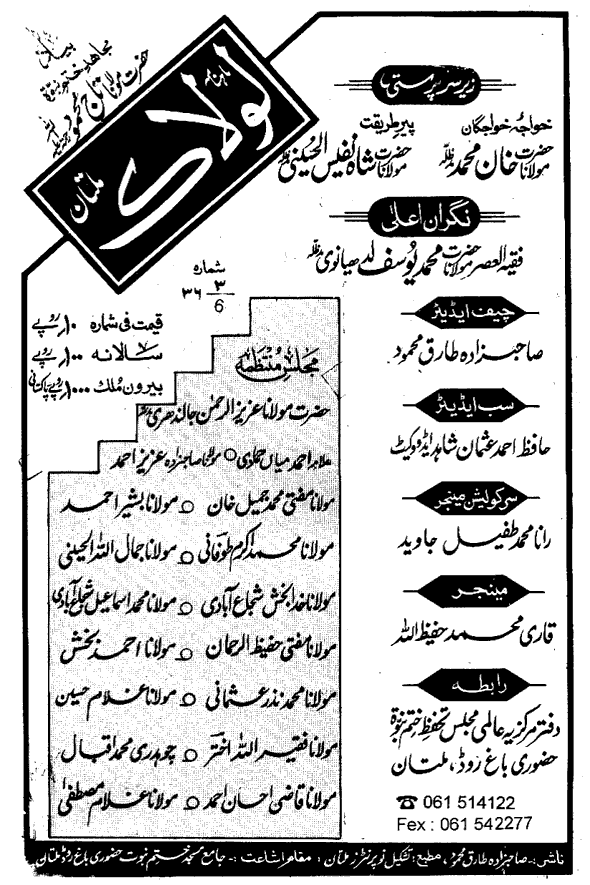 بیاد
مجاہد ختم نبوۃ
حضرت مولانا تاج محمود
ماہنامہ
لولاک
ملتان
زیر سرپرستی
خواجہ خواجگان
حضرت مولانا خان محمد مدظلہ
پیر طریقت
حضرت مولانا شاہ نفیس الحسینی مدظلہ
نگران اعلیٰ
فقیہ العصر حضرت مولانا محمد یوسف لدھیانوی مدظلہ
شمارہ
۳
6
۳۶
قیمت فی شمارہ ۱۰ روپے
سالانہ ۱۰۰ روپے
بیرون ملک ۱۰۰۰ روپے پاکستانی
چیف ایڈیٹر
صاحبزادہ طارق محمود
سب ایڈیٹر
حافظ احمد عثمان شاہد ایڈووکیٹ
سرکولیشن مینجر
رانا محمد طفیل جاوید
مینجر
قاری محمد حفیظ اللہ
رابطہ
دفتر مرکزیہ عالمی مجلس تحفظ ختم نبوۃ
حضوری باغ روڈ، ملتان
☎ 061 514122
Fex : 061 542277
مجلس منتظمہ
حضرت مولانا عزیز الرحمٰن جالندھری
علامہ احمد میاں حمادی ○ مولانا صاحبزادہ عزیز احمد
مولانا مفتی محمد جمیل خان ○ مولانا بشیر احمد
مولانا محمد اکرم طوفانی ○ مولانا جمال اللہ الحسینی
مولانا خدا بخش شجاع آبادی ○ مولانا محمد اسماعیل شجاع آبادی
مولانا مفتی حفیظ الرحمان ○ مولانا احمد بخش
مولانا محمد نذر عثمانی ○ مولانا غلام حسین
مولانا فقیر اللہ اختر ○ چوہدری محمد اقبال
مولانا قاضی احسان احمد ○ مولانا غلام مصطفیٰ
ناشر :- صاحبزادہ طارق محمود، مطبع: تشکیل نو پرنٹرز ملتان : مقام اشاعت :- جامع مسجد ختم نبوت حضوری باغ روڈ ملتان